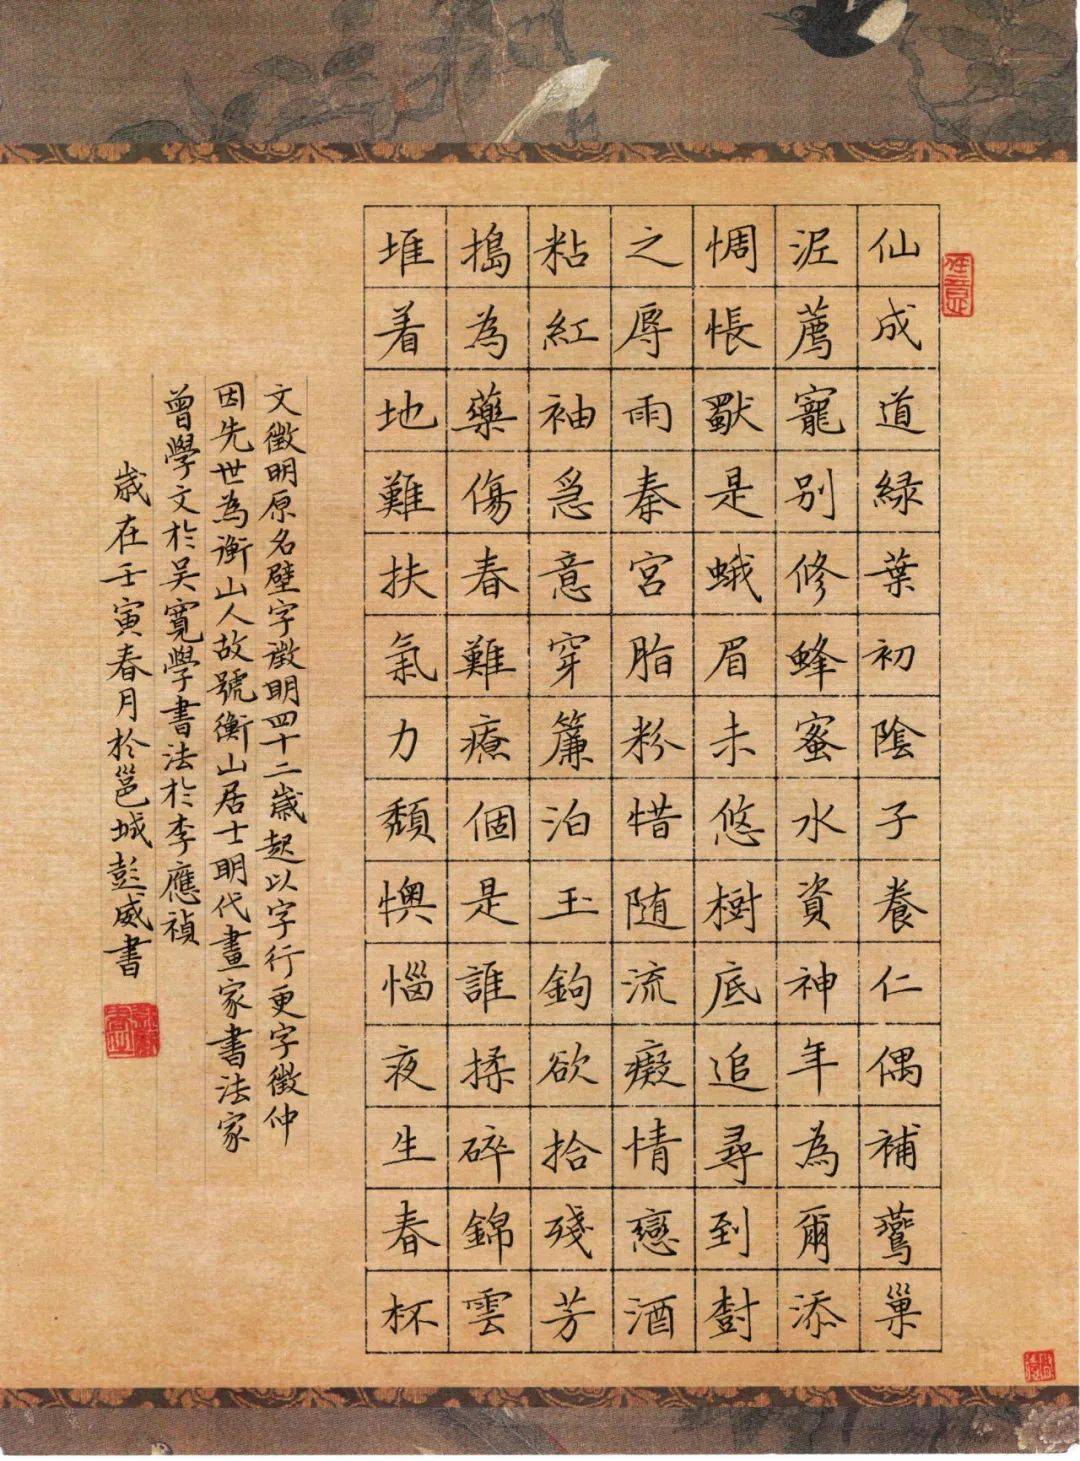 仙成道綠葉初陰子養仁偶補鶯巢
泥薦寵別修蜂蜜水資神年為爾添
惆悵獸是蛾眉未悠樹底追尋到樹
之辱雨秦宮脂粉惜随流癡情戀酒
粘紅袖急意穿簾泊玉鉤欲拾殘芳
搗為藥傷春難療個是誰揉碎錦雲
堆着地難扶氣力頹懊惱夜生春杯
文徵明原名壁字徵明四十二歲起以字行更字徵仲
因先世為衡山人故號衡山居士明代畫家書法家
曾學文於吴寬學書法於李應禎
歲在壬寅春月於邕城彭威書